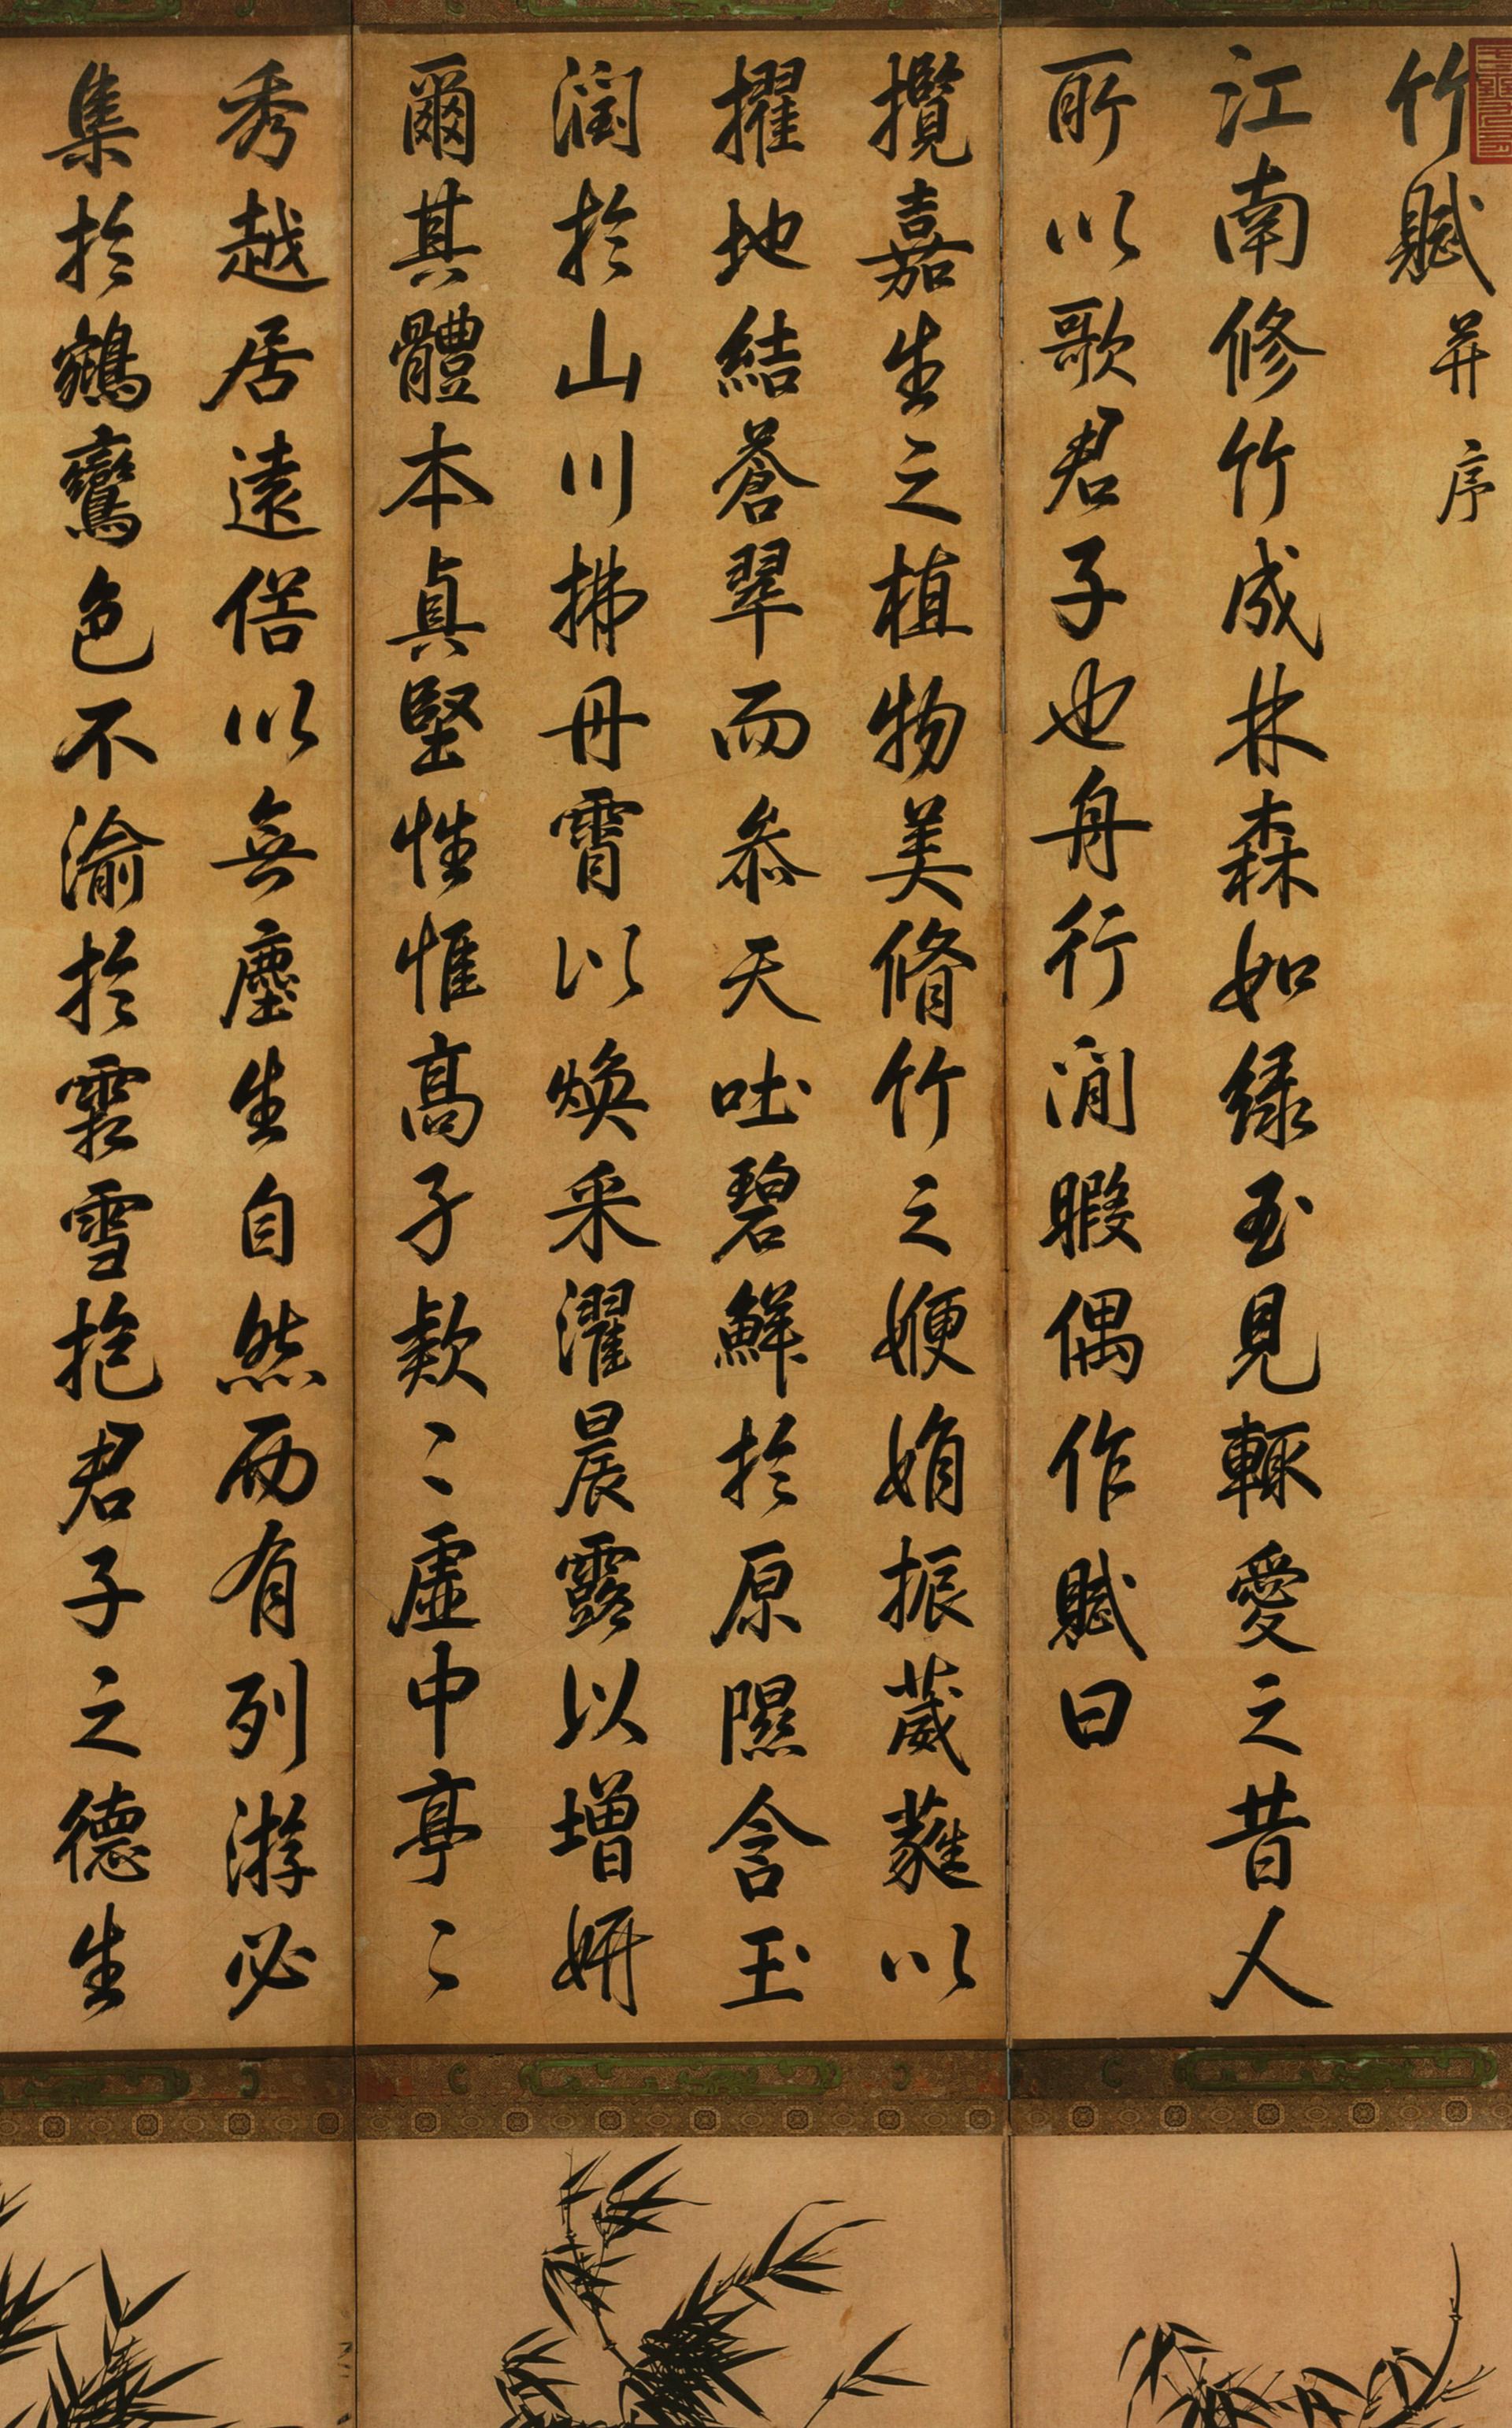 竹賦 并序
江南修竹成林森如綠玉見輒愛之昔人
所以歌君子也舟行閒暇偶作賦曰
攬嘉生之植物美脩竹之㛹娟振葳蕤以
擢地結蒼翠而叅天吐碧鮮於原隰含玉
潤於山川拂丹霄以煥采濯晨露以增妍
爾其體本真堅性惟高孑欵〻虛中亭〻
秀越居遠俗以無塵生自然而有列游必
集於鵷鸞色不渝於霜雪抱君子之德生